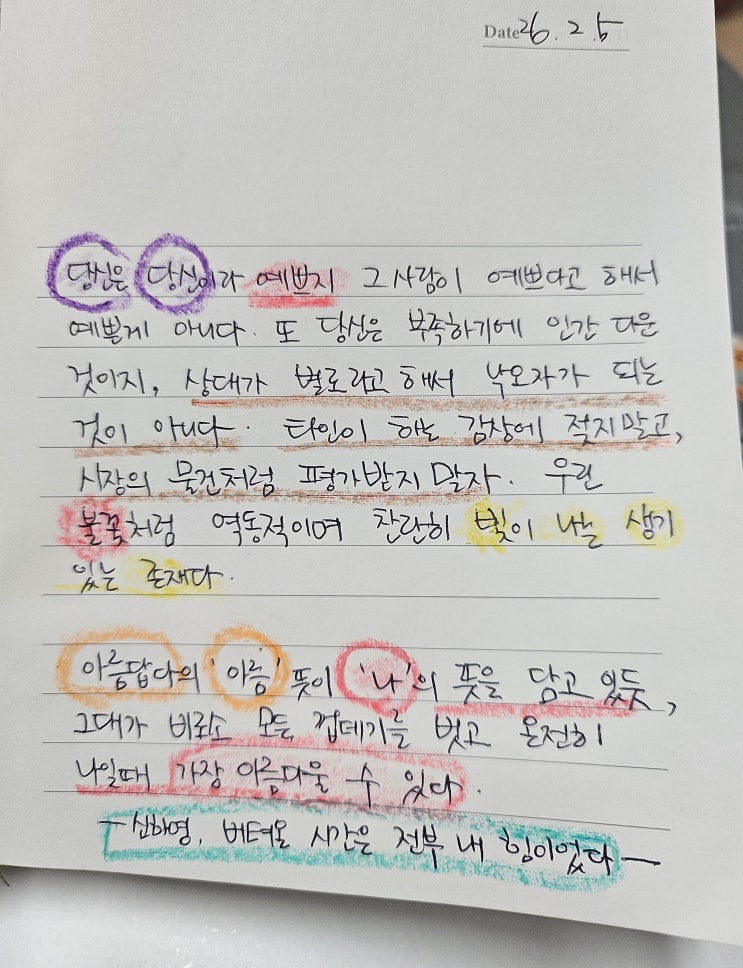 Date 26. 2. 5
당신은 당신이라 예쁘지 그 사람이 예쁘다고 해서
예쁠게 아니다. 또 당신은 부족하기에 인간 다운
것이지, 상대가 별로라고 해서 낙오자가 되는
것이 아니다. 타인이 하는 감상에 적지말고,
시장의 물건처럼 평가받지 말자. 우린
불꽃처럼 역동적이며 찬란히 빛이 나는 생기
있는 존재다.
아름답다의 '아름' 뜻이 '나'의 뜻을 담고 있듯,
그대가 비로소 모든 껍데기를 벗고 온전히
나일때 가장 아름다울 수 있다.
- 신하영, 버텨온 시간은 전부 내 힘이었다 -